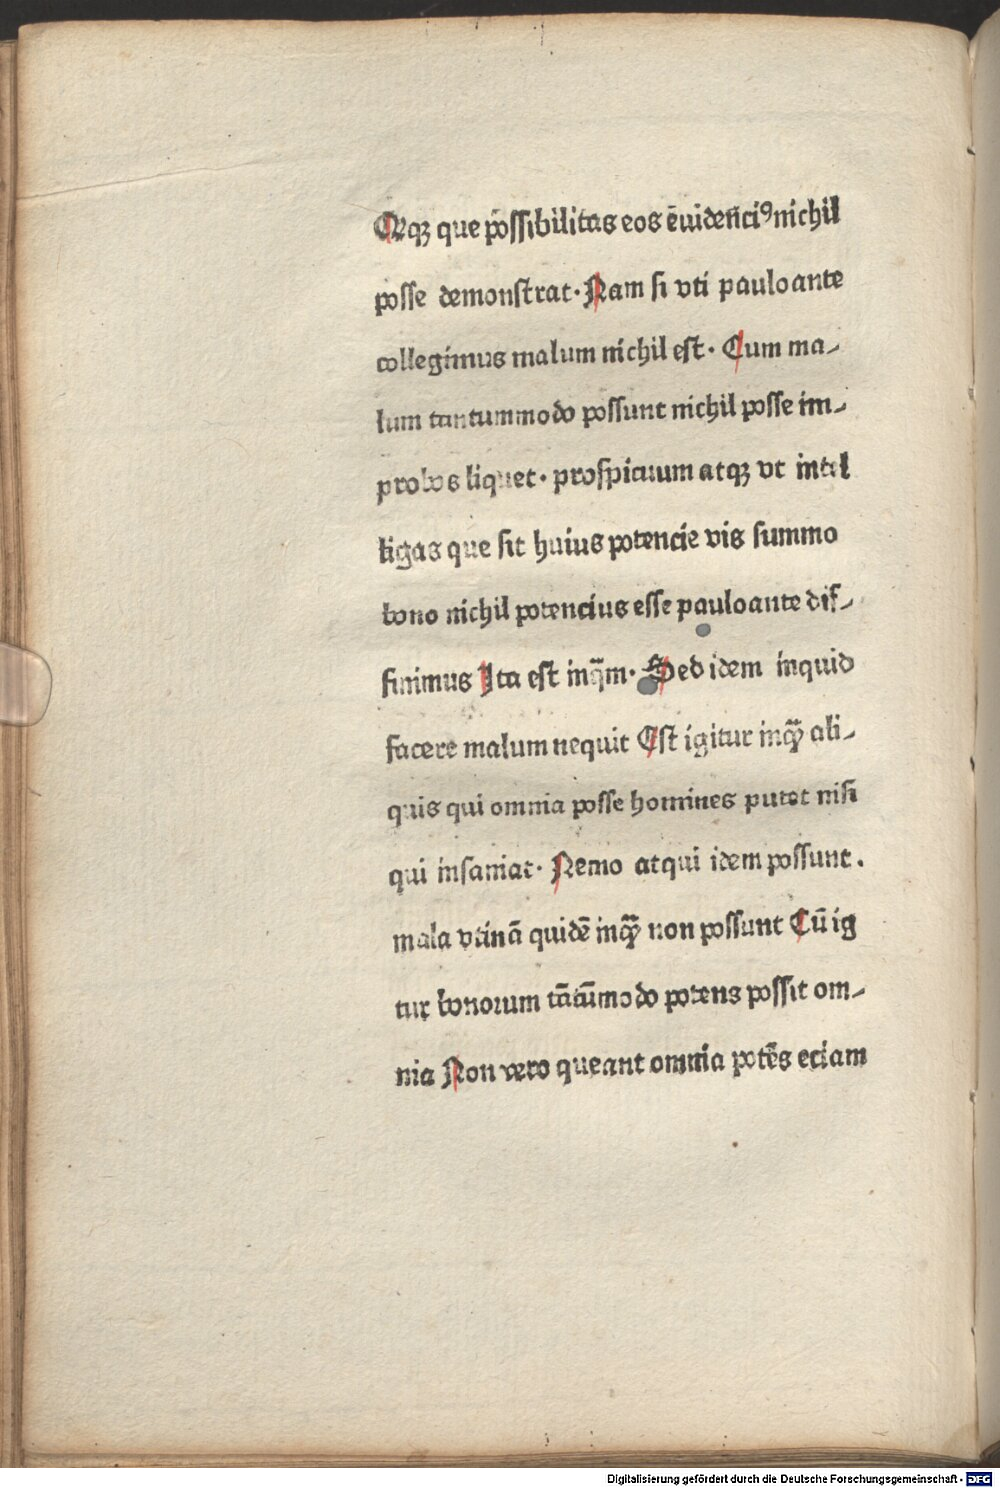 Eaqꝫ que p̄ossibilitas eos ēuidēnciꝰ nichil
posse demonstrat· Nam si vti pauloante
collegimus malum nichil est· Cum ma-
lum tantummodo possunt nichil posse im-
probos liquet· prospicuum atqꝫ vt intel
ligas que sit huius potencie vis summo
bono nichil potencius esse pauloante dif-
finimus Ita est inq̄m· Sed idem inquid
facere malum nequit Est igitur inqͣꝫ ali-
quis qui omnia posse homines putet nisi
qui insaniat· Nemo atqui idem possunt.
mala vtinā quidē inqͣꝫ non possunt Cū ig
tur bonorum tātūmodo potens possit om-
nia Non vero queant omnia potēs eciam
Digitalisierung gefördert durch die Deutsche Forschungsgemeinschaft - DFG